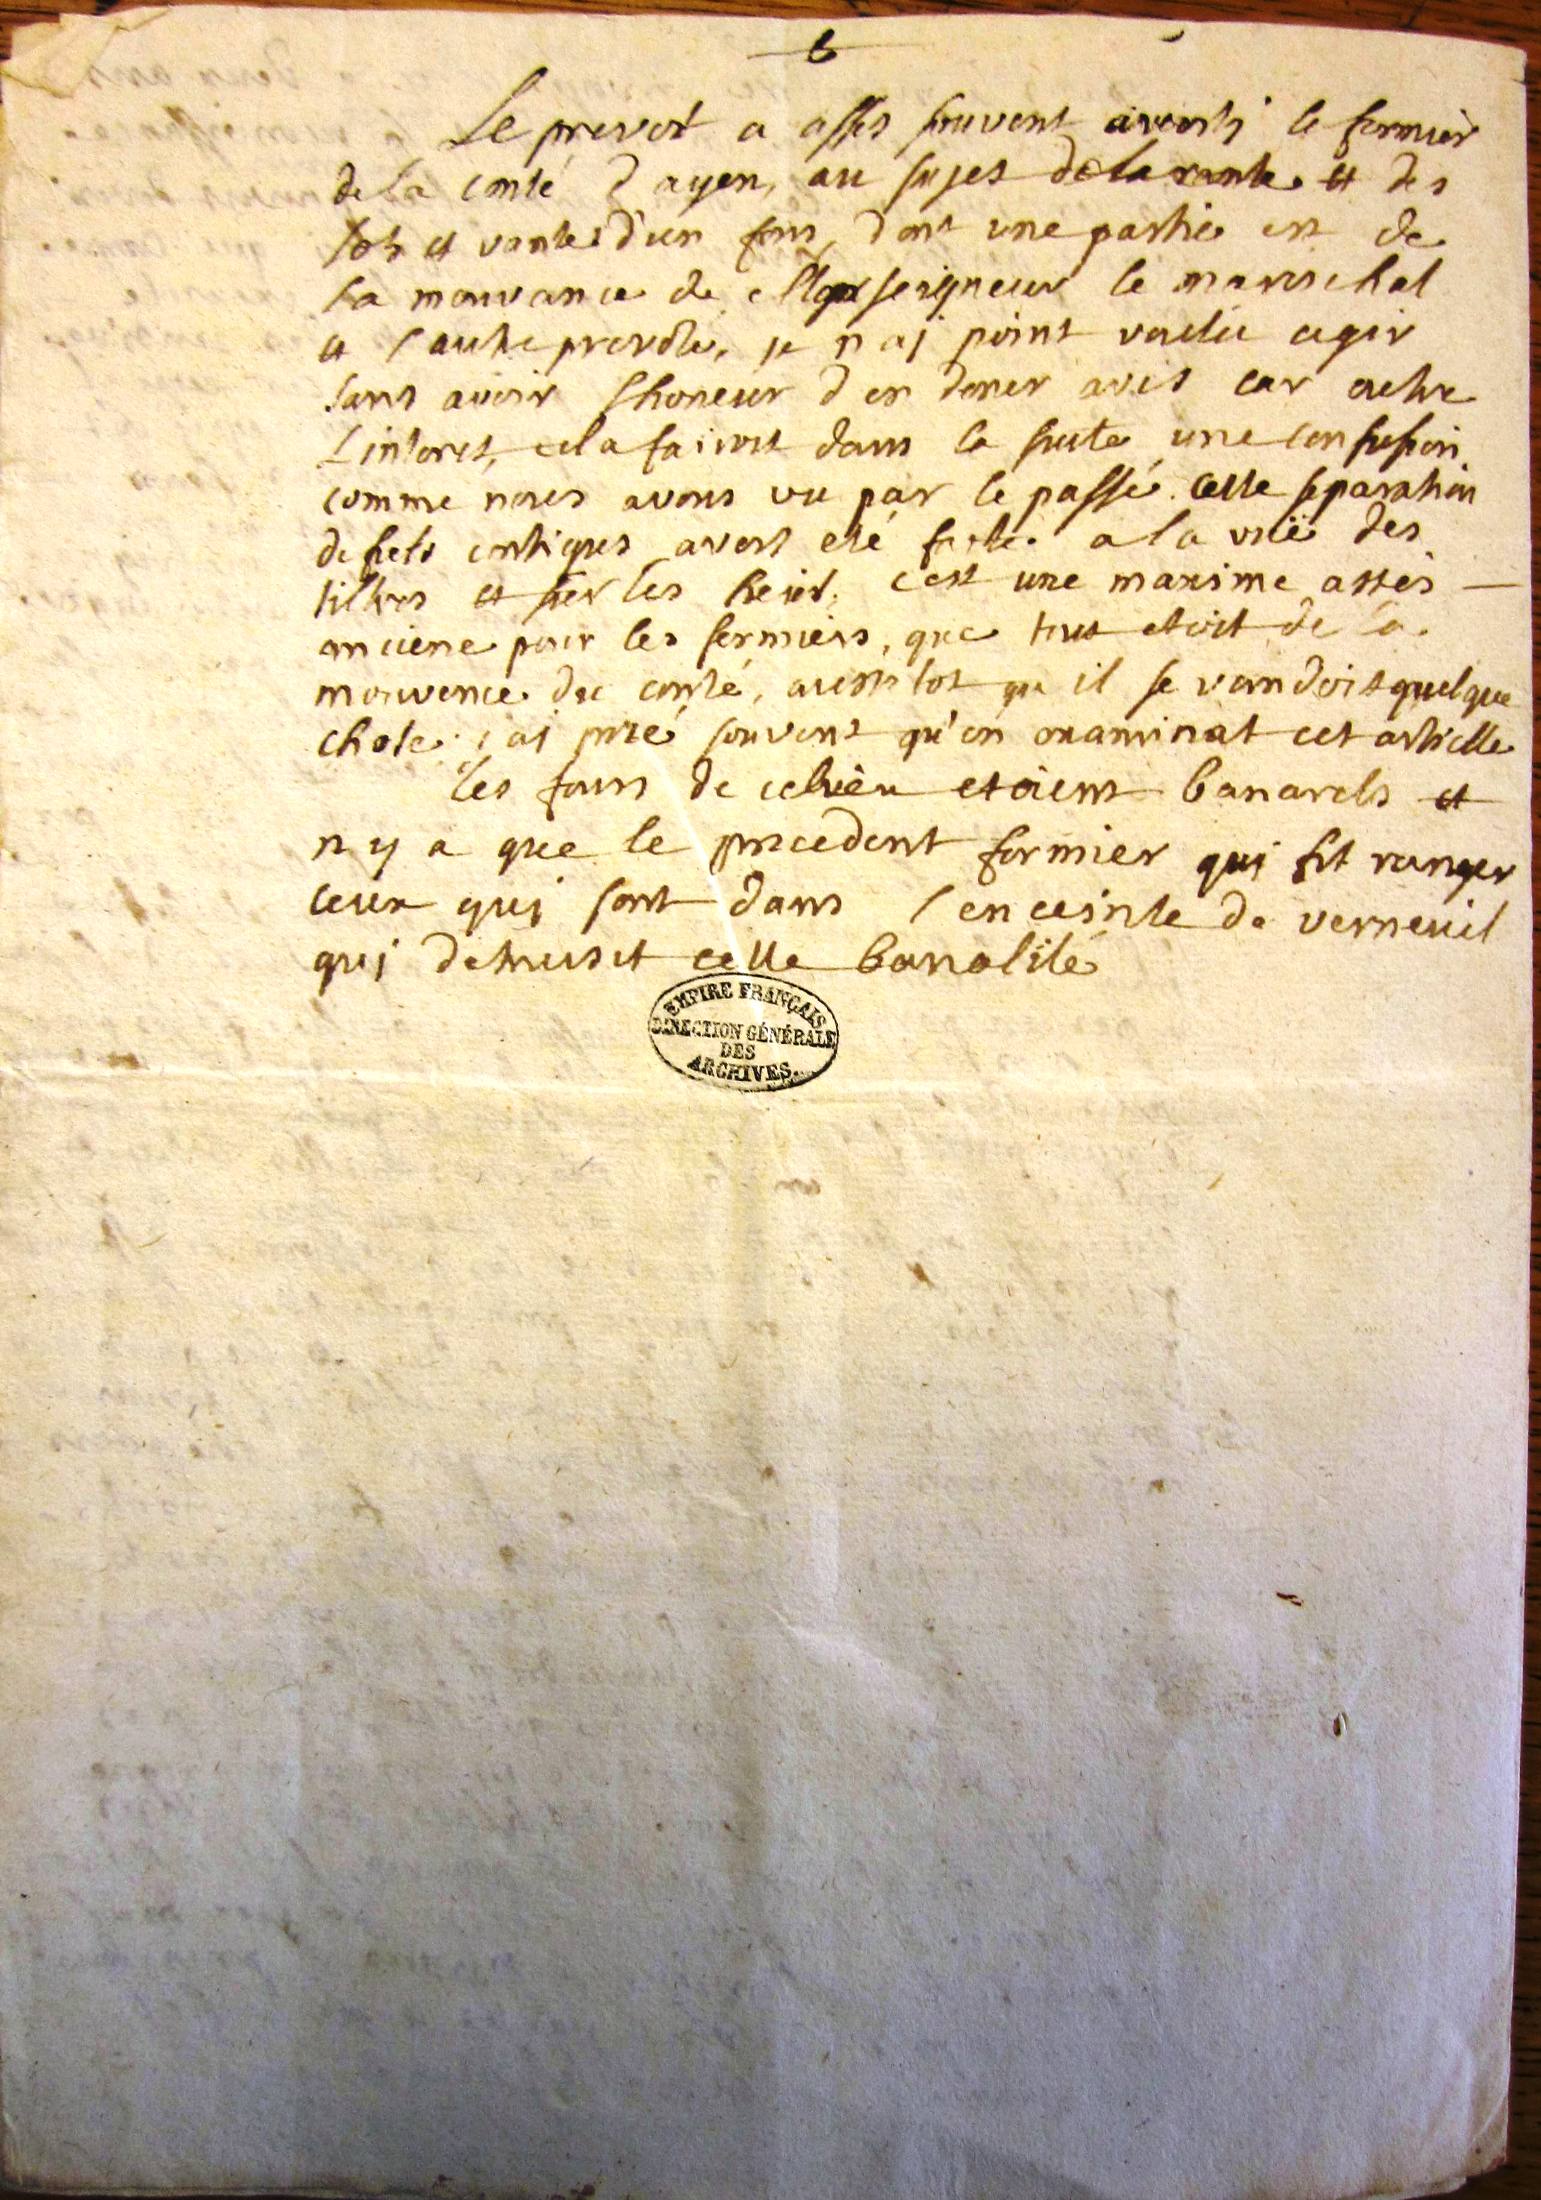 6
Le prevot a assés souvent averti le fermier
de la conté d'ayen, au sujet de la rante et des
lots et vantes d'un fons, dont une partie est de
la mouvance de Monseigneur le mareschal
et l'autre prevoté, je n'aj point voulu agir
sans avoir l'honeur d'en doner avis car outre
l'interet, cela fairoit dans la suite une confusion
comme nous avons vu par le passé. cette separation
de fiefs antiques avoit eté faite a la vuë des
tiltres et sur les lieux. c'est une maxime assés
anciene pour les fermiers, que tout etoit de la
mouvence du conté, aussitost qu'il se vandoit quelque
chose. j'ai prié souvent qu'on examinat cet articlle
les fours de ce lieu etoient banarels et
n'y a que le precedent fermier qui fit ranger
ceux qui sont dans l'enceinte de verneuil
qui detruisit cette banalité
EMPIRE FRANÇAIS
DIRECTION GÉNÉRALE
DES
ARCHIVES.